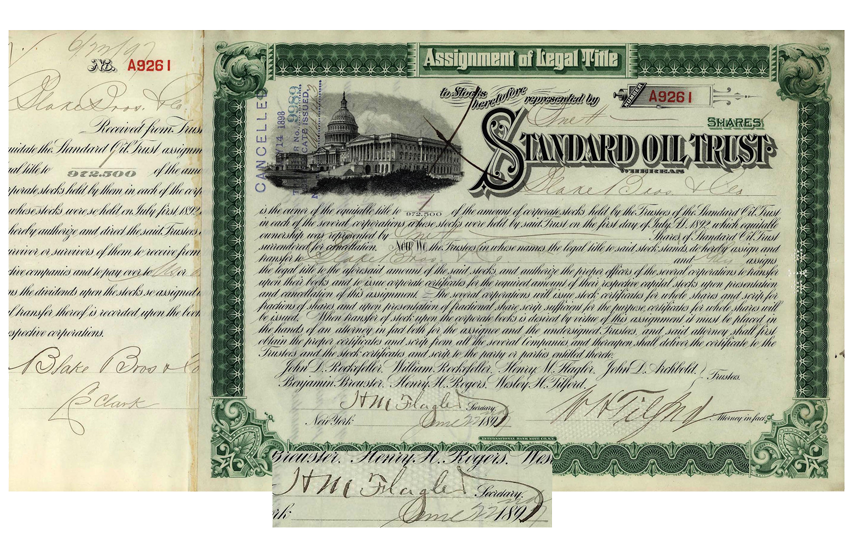 6/22/97
No. A9261
Blake Bros. & Co
Received from Trus
uidate the Standard Oil Trust assignm
al title to 972.500 of the amo
porate stocks held by them in each of the corp
whose stocks were so held on July first 1892
hereby authorize and direct the said Trust
urvivor or survivors of them to receive from
ctive companies and to pay over to
ns the dividends upon the stocks so assigned
l transfer thereof is recorded upon the boo
spective corporations.
Blake Bros & Co
E Clark
Assignment of Legal Title
to Stocks heretofore represented by
NUMBER A9261
SHARES
STANDARD OIL TRUST:
WHEREAS
Blake Bros & Co
CANCELLED
9989
DATE ISSUED
is the owner of the equitable title to 972.500 of the amount of corporate stocks held by the Trustees of the Standard Oil Trust
in each of the several corporations whose stocks were held by said Trust on the first day of July A.D. 1892 which equitable
ownership was represented by Shares of Standard Oil Trust
surrendered for cancellation. Now We the Trustees in whose names the legal title to said stocks stand, do hereby assign and
transfer to Blake Bros & Co and assigns
the legal title to the aforesaid amount of the said stocks and authorize the proper officers of the several corporations to transfer
upon their books and to issue corporate certificates for the required amount of their respective capital stocks upon presentation
and cancellation of this assignment. The several corporations will issue stock certificates for whole shares and scrip for
fractions of shares and upon presentation of fractional share scrip sufficient for the purpose, certificates for whole shares will
be issued. When transfer of stock upon the corporate books is desired by virtue of this assignment it must be placed in
the hands of an attorney in fact both for the assignee and the undersigned Trustees, and said attorney shall first
obtain the proper certificates and scrip from all the several Companies, and thereupon shall deliver the certificate to the
Trustees and the stock certificates and scrip to the party or parties entitled thereto.
John D. Rockefeller, William Rockefeller, Henry M. Flagler, John D. Archbold,
Benjamin Brewster, Henry H. Rogers, Wesley H. Tilford,
Trustees.
H M Flagler Secretary,
New York June 22nd 1897
W H Tilford Attorney in fact.
Brewster, Henry H. Rogers, Wes
H M Flagler Secretary,
rk June 22nd 1897